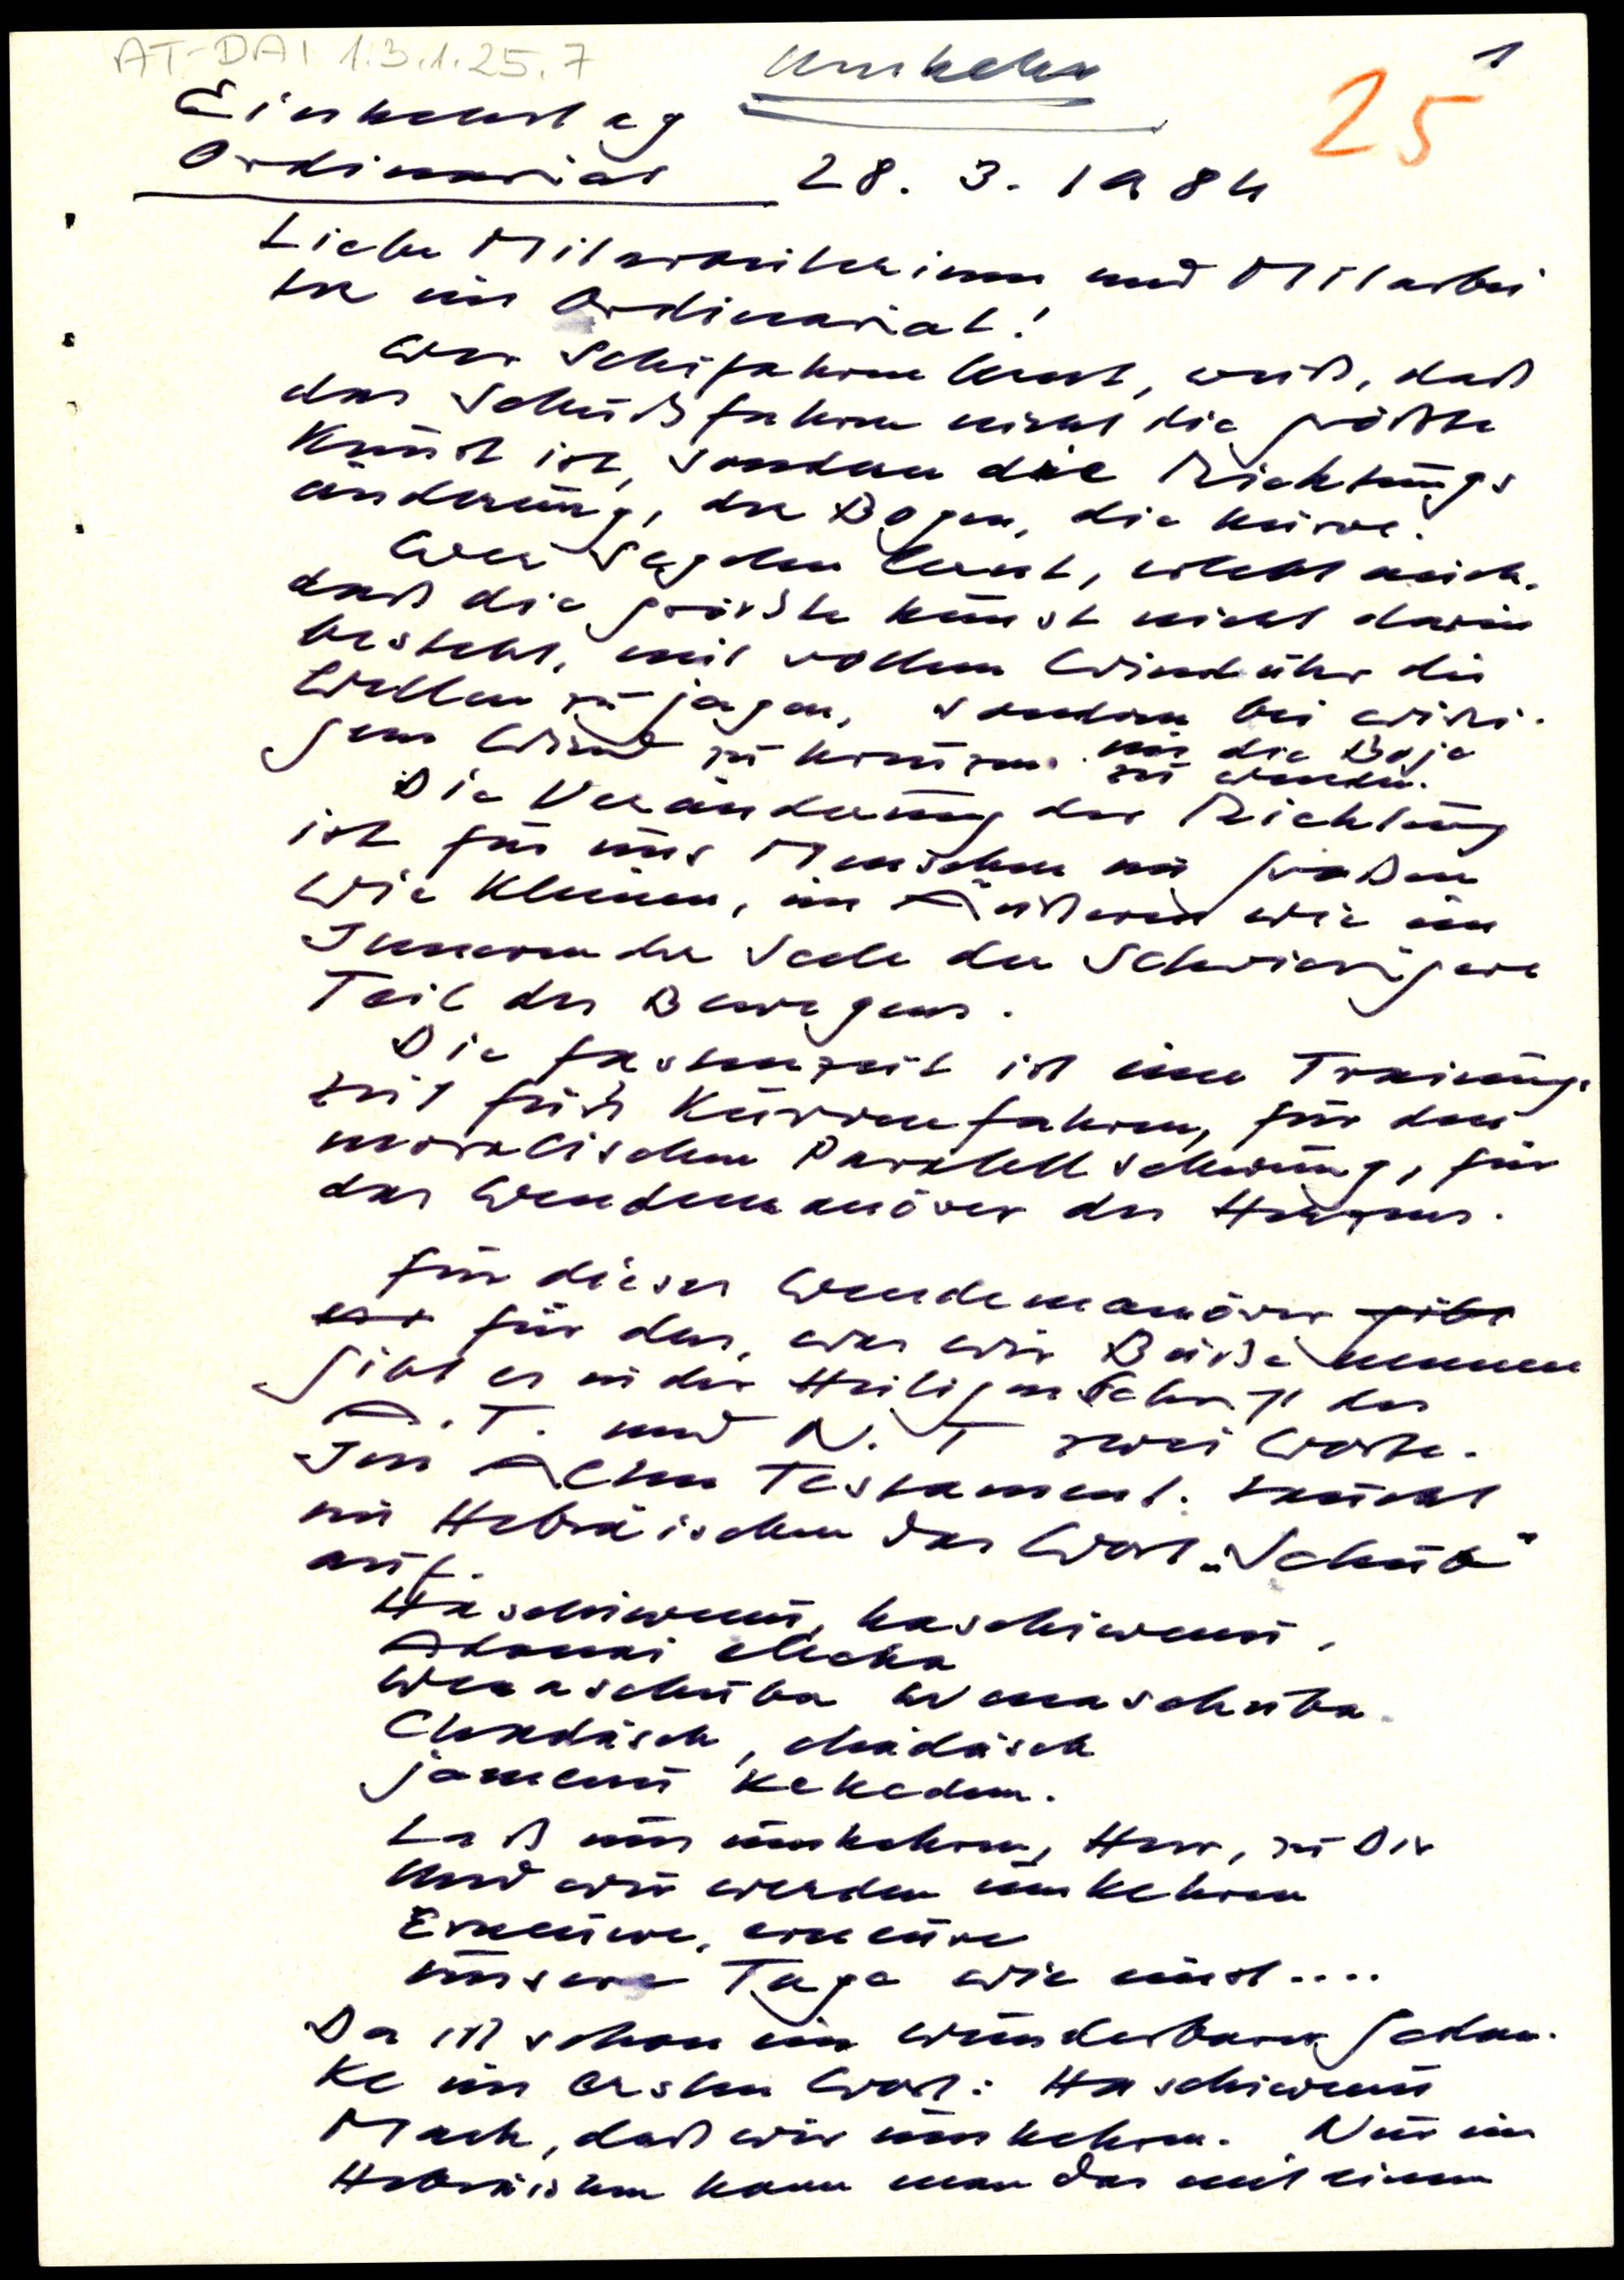 AT-DAI 1.3.1.25.7
Umkehr
1
25
Einkehrtag
Ordinariat 28. 3. 1984
Liebe Mitarbeiterinnen und Mitarbei
ter im Ordinariat!
Wer Schifahren lernt, weiß, daß
das Schußfahren nicht die größte
Kunst ist, sondern die Richtungs
änderung, der Bogen, die Kurve.
Wer Segeln lernt, erlebt auch,
daß die größte Kunst nicht darin
besteht, mit vollem Wind über die
Wellen zu jagen, sondern bei widri-
gem Wind zu kreuzen. um die Boje
zu wenden.
Die Veränderung der Richtung
ist für uns Menschen im Großen
wie Kleinen, im Äußeren wie im
Inneren der Seele der schwierigere
Teil des Bewegens.
Die Fastenzeit ist eine Trainings
zeit fürs Kurvenfahren, für den
moralischen Parallelschwung, für
das Wendemanöver des Herzens.
Für dieses Wendemanöver gibt
es für das, was wir Buße nennen
gibt es in der Heiligen Schrift des
A. T. und N. T zwei Worte.
Im Alten Testament. taucht
im Hebräischen das Wort „Schub"
auf.
Haschiwenu, haschiwenu,
Adonai elecha
Wenaschuba wenaschuba.
Chadäsch, chadäsch
jamenu kekedem.
Laß uns umkehren, Herr, zu Dir
Und wir werden umkehren
Erneuere, erneure
unsere Tage wie einst....
Da ist schon ein wunderbarer Gedan-
ke im ersten Wort: Haschiwenu
Mach, daß wir umkehren. Nur im
Hebräischen kann man das mit einem